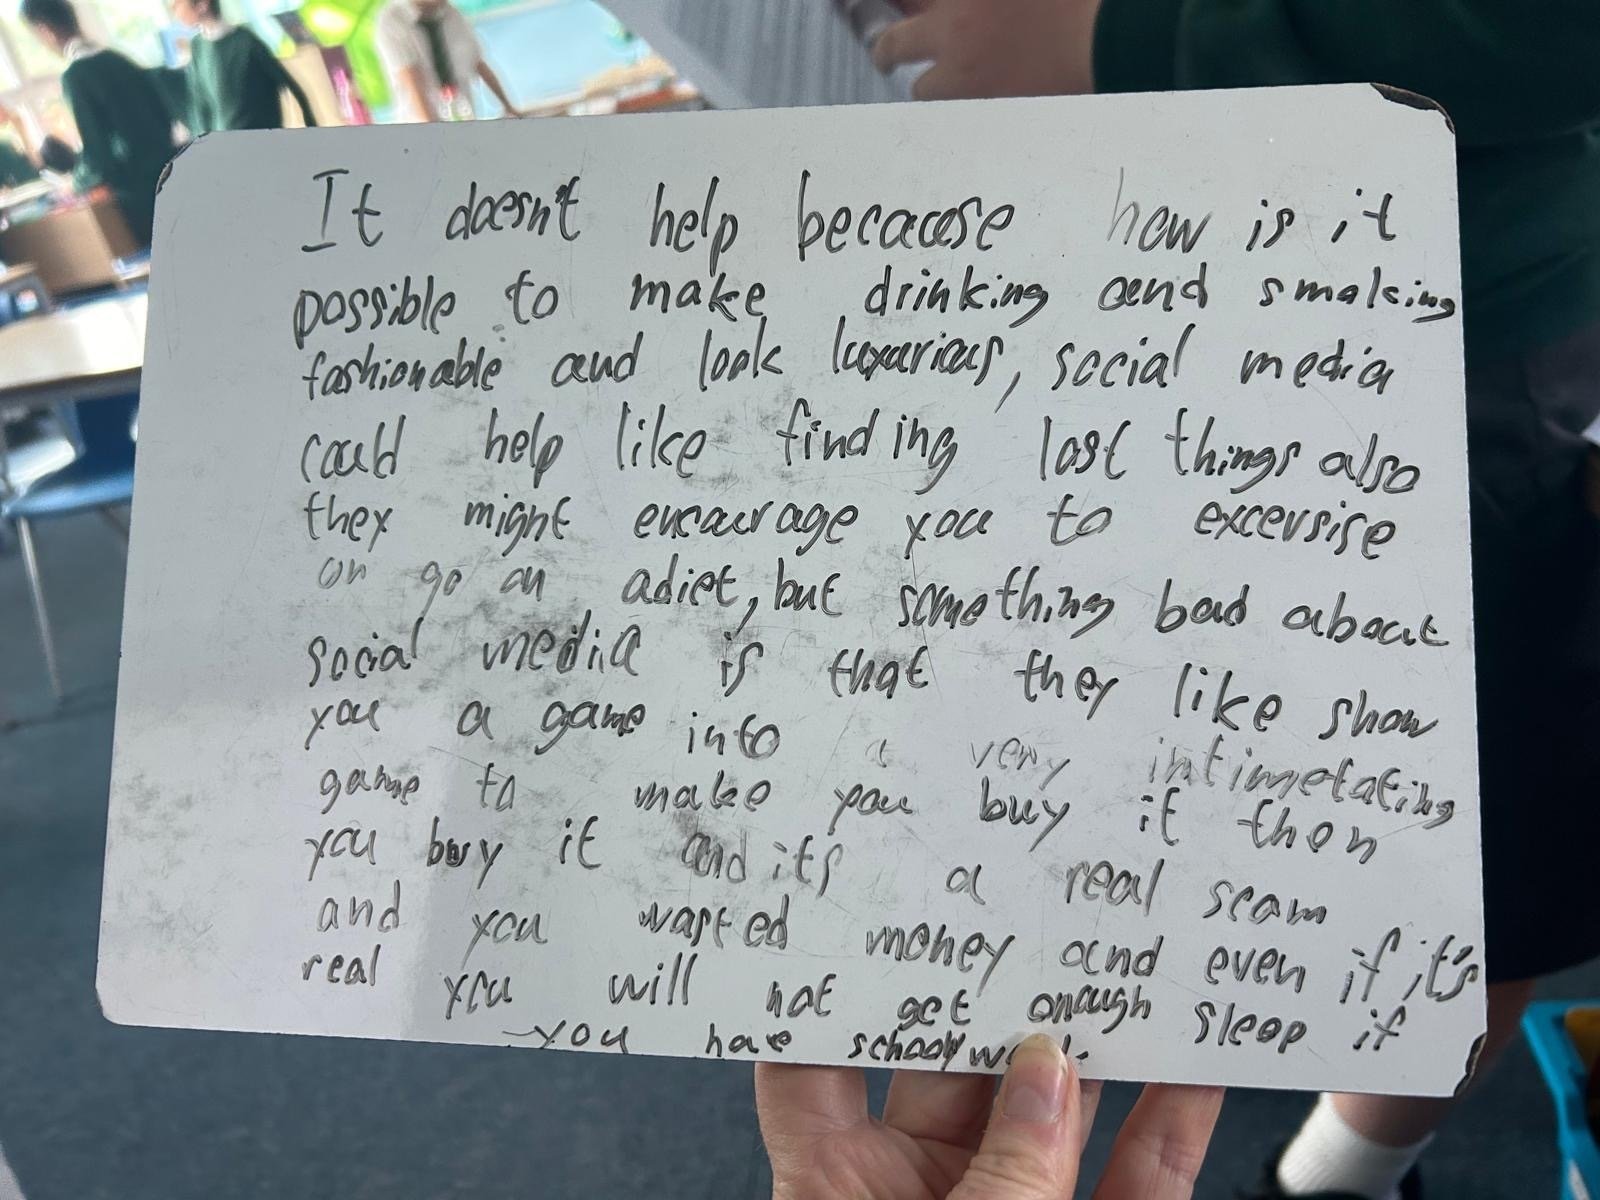 It doesn't help because how is it
possible to make drinking and smoking
fashionable and look luxurious, social media
could help like finding lost things also
they might encourage you to excersise
or go on adiet, but something bad about
social media is that they like show
you a game into a very intimetating
game to make you buy it then
you buy it and its a real scam
and you wasted money and even if it's
real you will not get enough sleep if
you have school